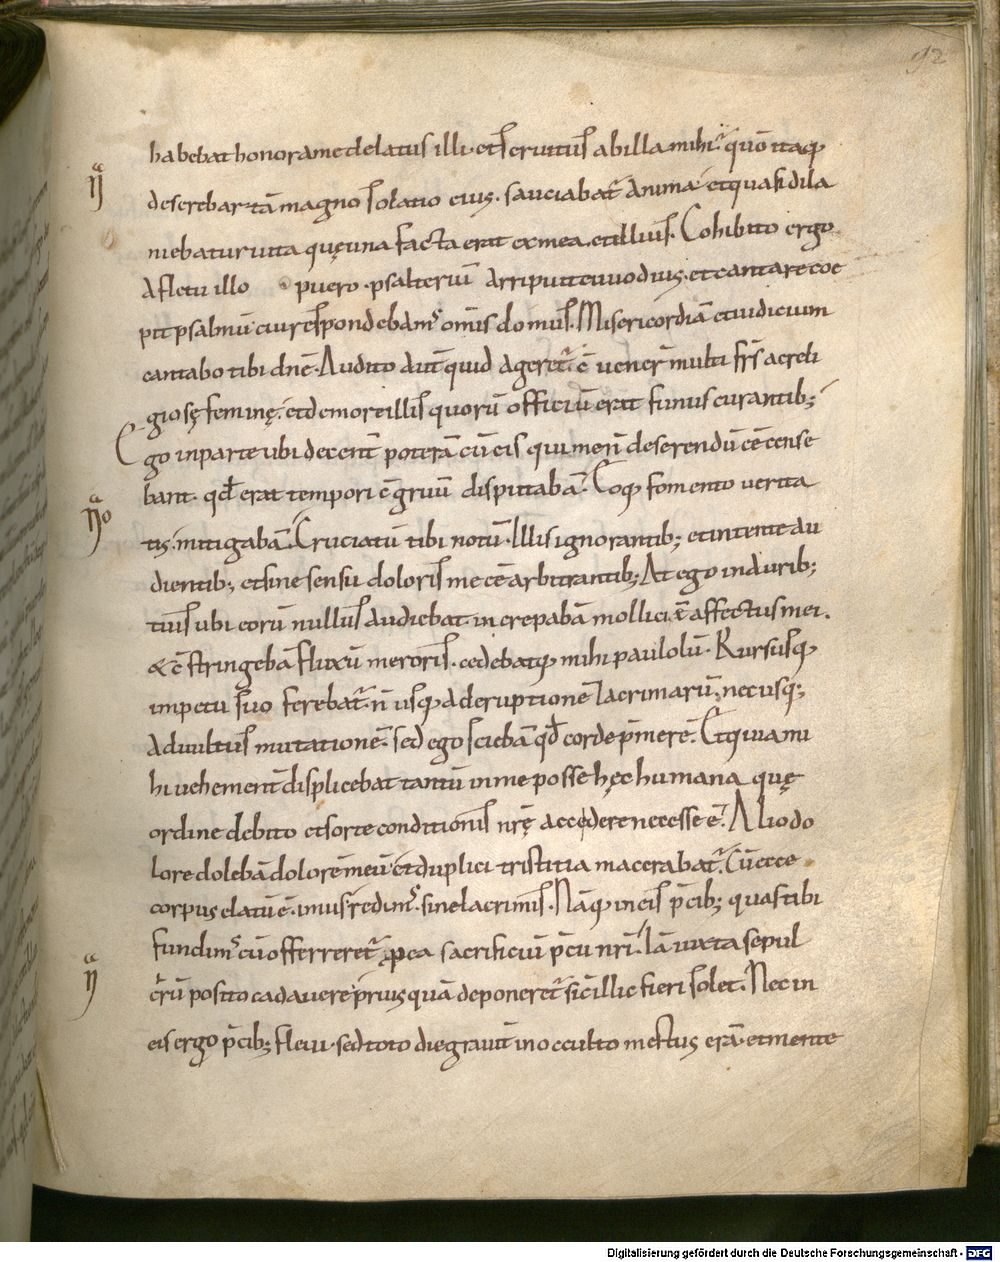 92
habebat honor a me delatus illi · et servitus ab illa mihi · quō itaq;
deserebar tā magno solatio eius · sauciabat̄ anima · et quasi dila
niebatur vita quę una facta erat ex mea et illius. Cohibito ergo
a fletu illo puero · psalteriū arripuit euuodius · et cantare coe
pit psalmū cui respondebam᷒ om̄is domus. Misericordiā et iudicium
cantabo tibi dn̄e · Audito aut̄ quid ageret̄ c̄ vener̄ multi fr̄s ac reli
giosę feminę · et de more illis quorū officiū erat funus curantib;
Ego in parte ubi decent̄ poterā cū eis qui me n̄ deserendū ee᷒ cense
bant · qd̄ erat tempori c̄gruū disputabā. Eoq; fomento verita
tis mitigabā. Cruciatū tibi notū. Illis ignorantib; et intente au
dientib; et sine sensu doloris me ee᷒ arbitrantib; At ego in aurib;
tuis ubi eorū nullus audiebat increpabā molliciē affectus mei.
& c̄stringebā fluxū meroris · cedebatq; mihi paulolū · Rursusq;
impetu suo ferebat̄ · n̄ usq; ad eruptionē lacrimarū · nec usq;
ad vultus mutationē · sed ego sciebā qd̄ corde p̄merē. Et quia mi
hi vehement̄ displicebat tantū in me posse hęc humana quę
ordine debito et sorte conditionis nr̄ę accedere necesse ē. Alio do
lore dolebā dolorē meū et duplici tristitia macerabat̄. Cū ecce
corpus elatū ē · imus redim᷒ · sine lacrimis · Nāq; in eis p̄cib; quas tibi
fundim᷒ cū offerreret̄ p ea sacrificiū p̄cii nr̄i. Iā iuxta sepul
cr̄ū posito cadavere priusquā deponeret̄ sic illic fieri solet. Nec in
eis ergo p̄cib; flevi · sed toto die gravit̄ in occulto mestus erā · et mente
Digitalisierung gefördert durch die Deutsche Forschungsgemeinschaft - DFG